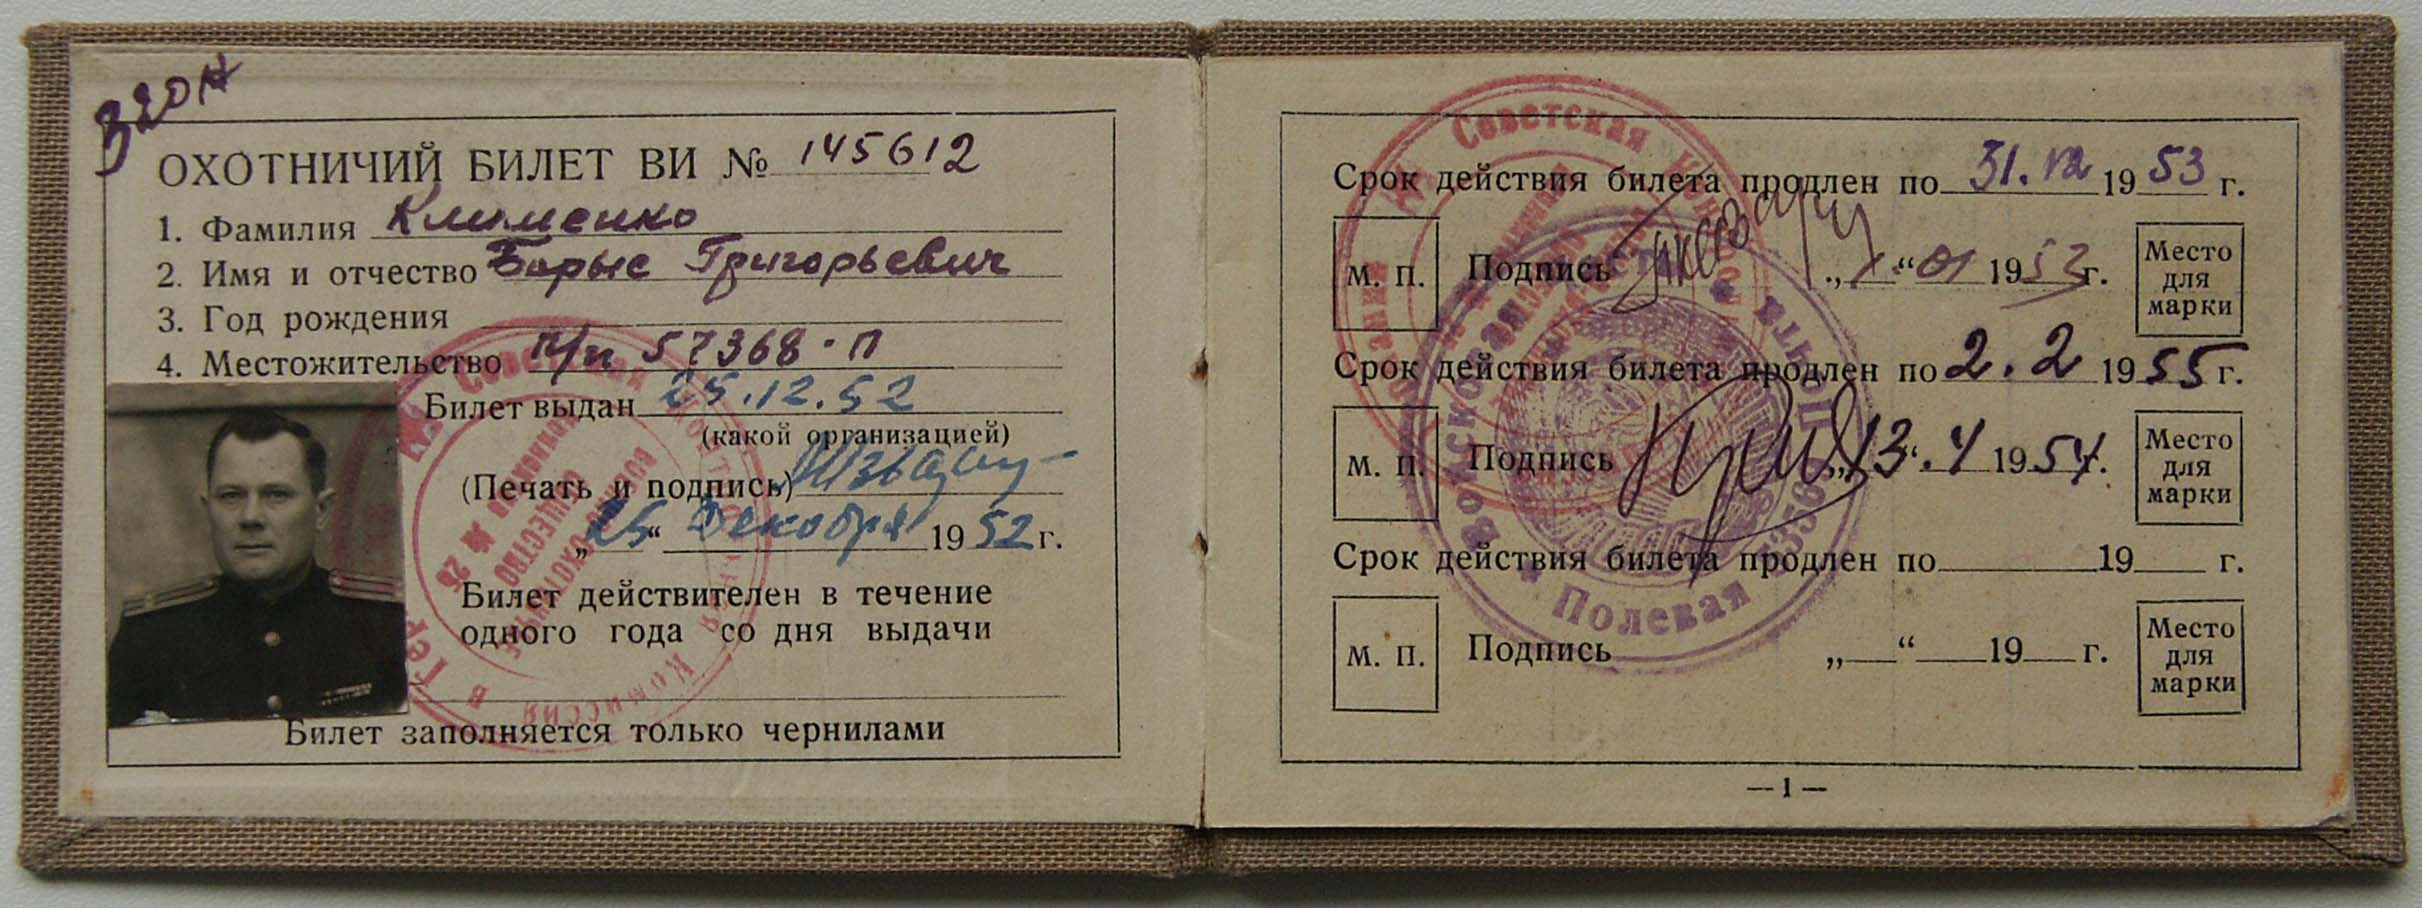 ОХОТНИЧИЙ БИЛЕТ ВИ № 145612
1. Фамилия Клименко
2. Имя и отчество Борис Григорьевич
3. Год рождения
4. Местожительство п/п 57368-П
Билет выдан 25.12.52
(какой организацией)
(Печать и подпись)
„25“ Декабря 1952 г.
Билет действителен в течение
одного года со дня выдачи
Билет заполняется только чернилами
Советская Кон
Военно-охотничье
общество
№ 26
Комиссия в Гер
Срок действия билета продлен по 31.12 1953 г.
М. П. Подпись „ “ 01 1953 г. Место для марки
Срок действия билета продлен по 2.2 1955 г.
М. П. Подпись „13“ 4 1954 г. Место для марки
Срок действия билета продлен по 19 г.
М. П. Подпись „ “ 19 г. Место для марки
Советская
Войсковая
Полевая почта
— 1 —